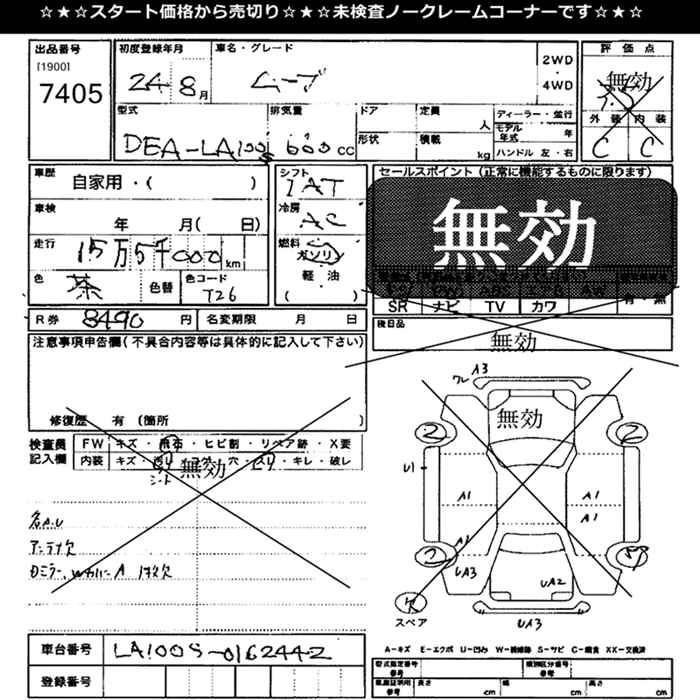 ☆★☆★スタート価格から売切り☆★☆★未検査ノークレームコーナーです☆★☆
出品番号 初度登録年月 車名・グレード 2WD 評価点
[1900] 24-8月 ムーブ 4WD 無効
7405 外装 内装
型式 排気量 ドア 定員 人 ディーラー・並行 C C
DBA-LA100S 600cc 形状 積載 kg モデル年式 年
ハンドル 左・右
車歴 自家用・( ) シフト IAT セールスポイント(正常に機能するものに限ります)
車検 年 月( 日) 冷房 AC 無効
走行 15万5千000km 燃料 ガソリン
色 茶 色替 色コード T26 軽・油
( ) SR ナビ TV カワ 有・無
R券 8490円 名変期限 月 日 後日品
無効
注意事項申告欄(不具合内容等は具体的に記入して下さい)
修復歴 有 (箇所 )
検査員 FW キズ・飛石・ヒビ割・リペア跡・X要
記入欄 内装 キズ・汚レ・コゲ・穴・スリ・キレ・破レ
シート 無効
各A.U
アンテナ欠
A3
無効
2 2
U1
A1 A1
A1
A1
UA3 UA2
スペア UA3
車台番号 LA100S-0162442
登録番号
A-キズ E-エクボ U-凹み W-補修跡 S-サビ C-腐食 XX-交換済
型式指定番号 類別区分番号
参考 参考
長さ cm 幅 cm 高さ cm